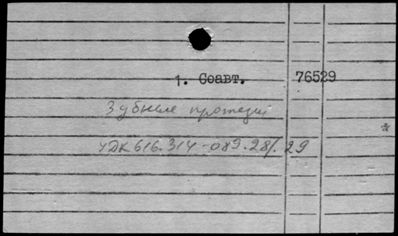 1. Соавт. 76529
Зубные протезы
*
УДК 616.314-089.28/.29